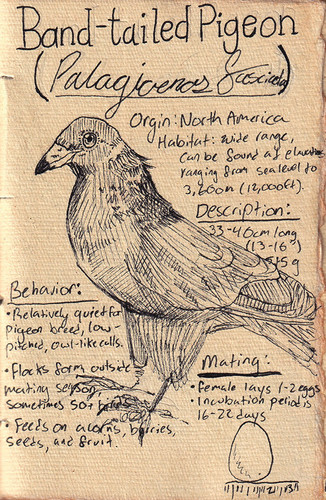 Band-tailed Pigeon
(Palagioenas fasciata)
Orgin: North America
Habitat: wide range,
can be found at elevations
ranging from sea level to
3,600m (12,000ft).
Description:
33-40cm long
(13-16")
g
Behavior:
• Relatively quiet for
pigeon breed, low-
pitched, owl-like calls.
• Flocks form outside
mating season,
sometimes 50+ birds
• Feeds on acorns, berries,
seeds, and fruit.
Mating:
• Female lays 1-2 eggs
• Incubation period is
16-22 days